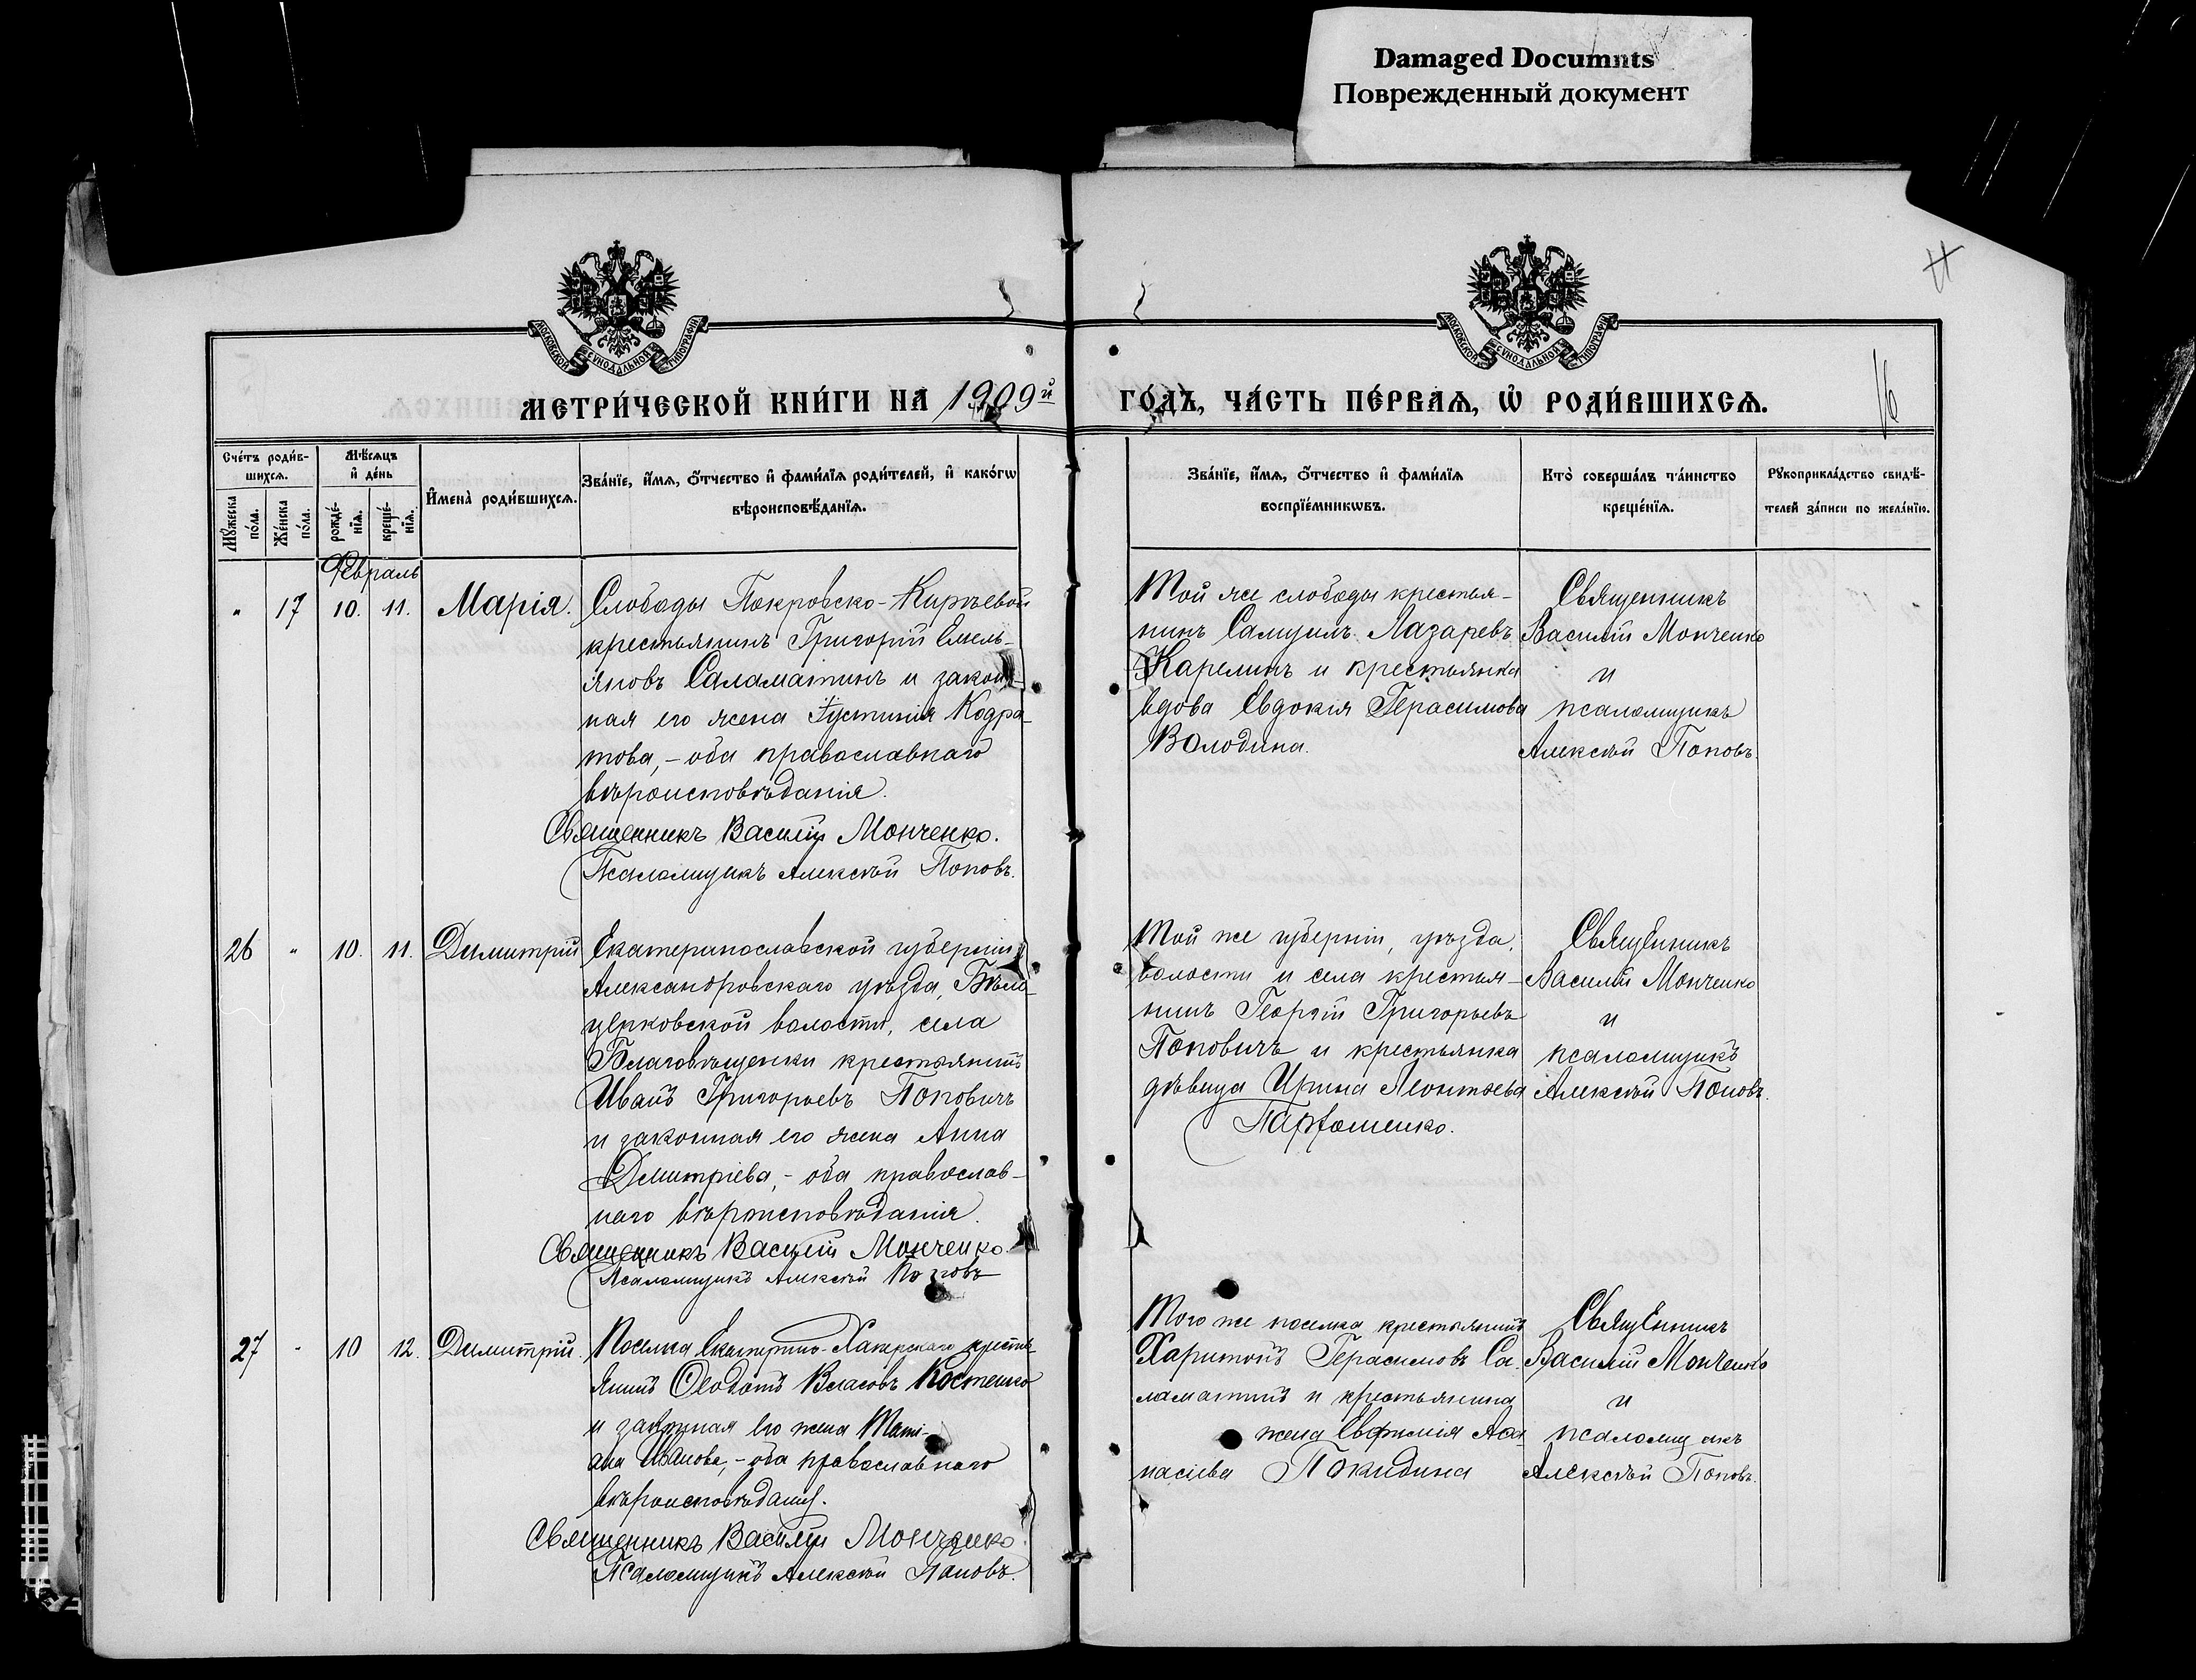 Damaged Documnts
Поврежденный документ
МОСКОВСКОЙ СѴНОДАЛЬНОЙ ТИПОГРАФІИ
МОСКОВСКОЙ СѴНОДАЛЬНОЙ ТИПОГРАФІИ
МЕТРИ́ЧЕСКОЙ КНИ́ГИ НА 1909й ГО́ДЪ, ЧА́СТЬ ПЕ́РВАѦ, Ѡ҆ РОДИ́ВШИХСѦ.
16
Сче́тъ роди́в-
шихсѧ.
Мꙋ́жеска по́ла.
Же́нска по́ла.
Мѣ́сѧцъ
и҆ де́нь
рожде́-
нїѧ.
креще́-
нїѧ.
И҆мена̀ роди́вшихсѧ.
Зва́нїе, и҆́мѧ, ѻ҆́тчество и҆ фами́лїѧ роди́телей, и҆ како́гѡ
вѣроисповѣ́данїѧ.
Зва́нїе, и҆́мѧ, ѻ҆́тчество и҆ фами́лїѧ
воспрїе́мникѡвъ.
Кто̀ соверша́лъ та́инство
креще́нїѧ.
Рꙋкоприкла́дство свидѣ́-
телей за́писи по жела́нїю.
Февраль
" 17 10. 11. Марія.
Слободы Покровско-Киръевой
крестьянинъ Григорій Емель-
яновъ Саламатинъ и закон-
ная его жена Іустинія Кодра-
това, - оба православнаго
вѣроисповѣданія.
Священникъ Василій Монченко.
Псаломщикъ Алексѣй Поповъ.
Той же слободы крестья-
нинъ Самуилъ Лазаревъ
Карелинъ и крестьянка
вдова Евдокія Герасимова
Володина.
Священникъ
Василій Монченко
и
псаломщикъ
Алексѣй Поповъ.
26 " 10. 11. Димитрій
Екатеринославской губерніи
Александровскаго уѣзда, Бѣло-
церковской волости, села
Благовѣщенки крестьянинъ
Иванъ Григорьевъ Поповичъ
и законная его жена Анна
Димитріева, - оба православ-
наго вѣроисповѣданія.
Священникъ Василій Монченко.
Псаломщикъ Алексѣй Поповъ
Той же губерніи, уѣзда,
волости и села крестья-
нинъ Георгій Григорьевъ
Поповичъ и крестьянка
дѣвица Ирина Леонтьева
Парфоменко.
Священникъ
Василій Монченко
и
псаломщикъ
Алексѣй Поповъ.
27 " 10 12. Димитрій.
Поселка Екатерино-Хаперскаго кресть-
янинъ Ѳеодотъ Власовъ Костенко
и законная его жена Тати-
ана Иванова, - оба православнаго
вѣроисповѣданія.
Священникъ Василій Монченко
Псаломщикъ Алексѣй Поповъ.
Того же поселка крестьянинъ
Харитонъ Герасимовъ Са-
ламатинъ и крестьянина
жена Евфимія Аѳа-
насіева Покидина
Священникъ
Василій Монченко
и
псаломщикъ
Алексѣй Поповъ.